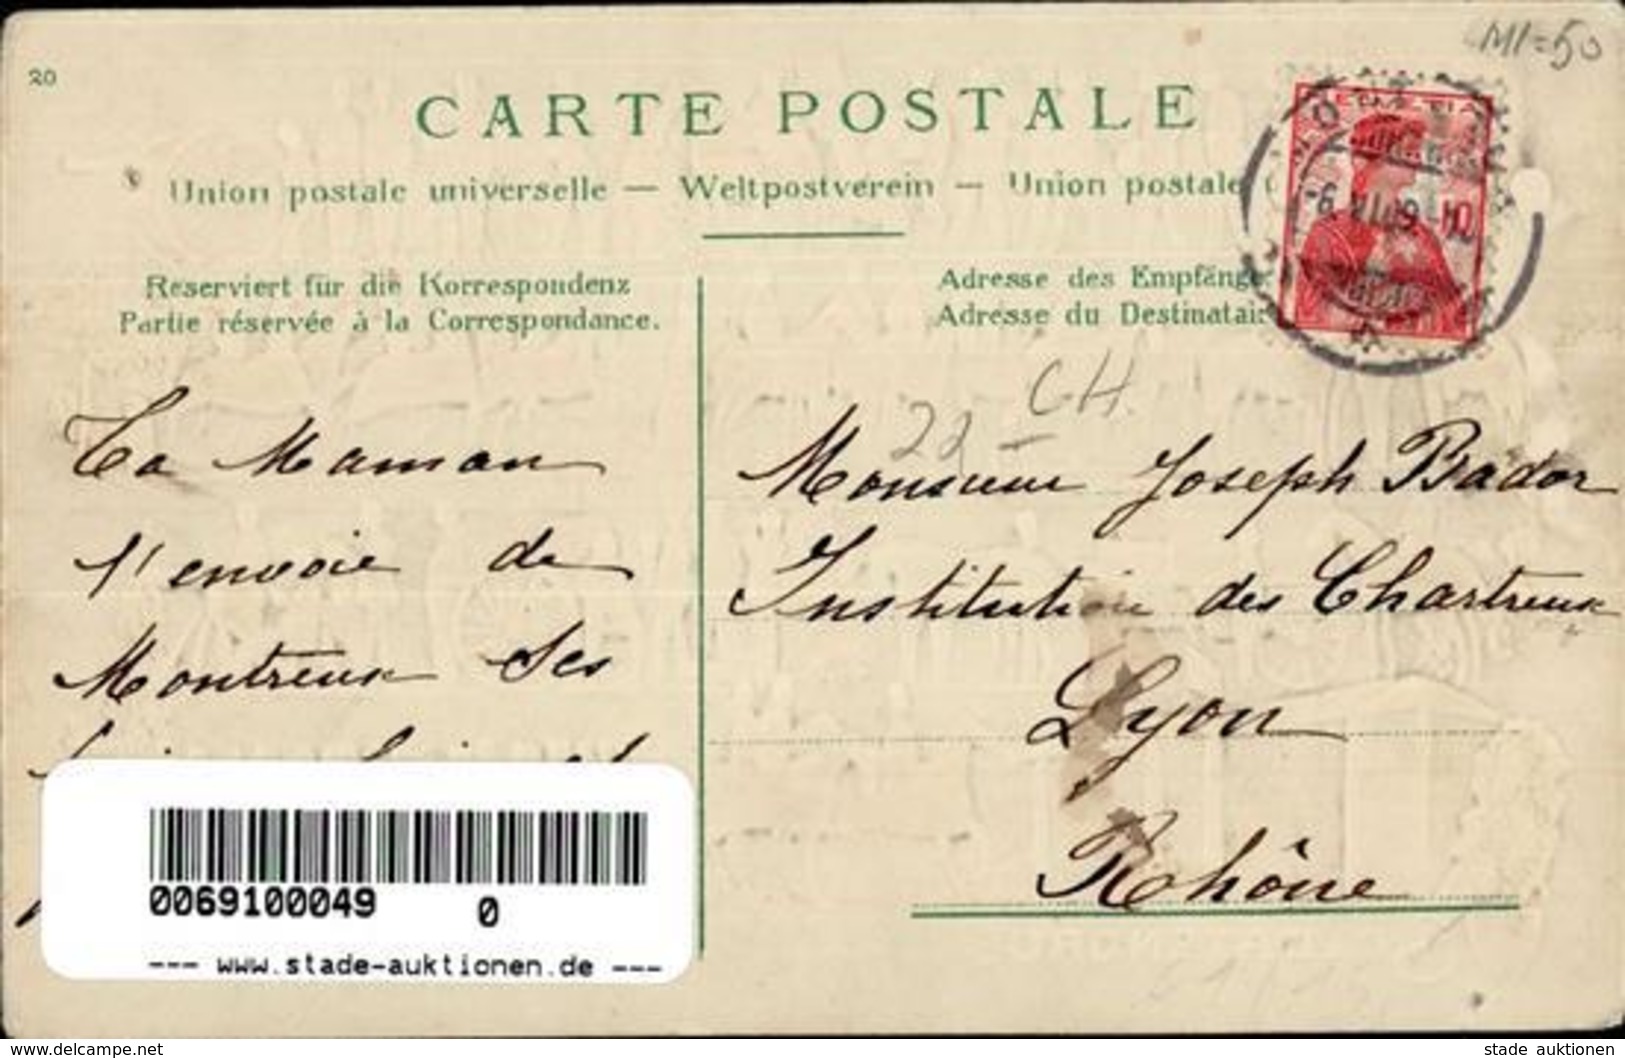 MI=50
20
CARTE POSTALE
Union postale universelle — Weltpostverein — Union postale
Reserviert für die Korrespondenz
Partie réservée à la Correspondance.
Adresse des Empfänge
Adresse du Destinatai
-6.VI.09
10
22 CH.
Ta Maman
t'envoie de
Montreux Ses
Monsieur Joseph Brador
Institution des Chartreux
Lyon
Rhône
0069100049 0
--- www.stade-auktionen.de ---
www.delcampe.net
stade auktionen